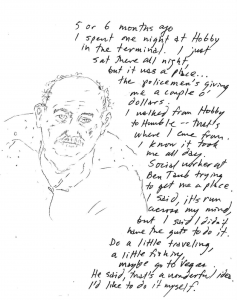 5 or 6 months ago
I spent one night at Hobby
in the terminal. I just
sat there all night,
but it was a place...
the policemen's giving
me a couple o'
dollars.
I walked from Hobby
to Humble -- that's
where I came from.
I know it took
me all day.
Social worker at
Ben Taub trying
to get me a place.
I said, it's run
across my mind,
but I said I didn't
have the guts to do it.
Do a little traveling,
a little fishing,
maybe go to Vegas.
He said, that's a wonderful idea.
I'd like to do it myself.